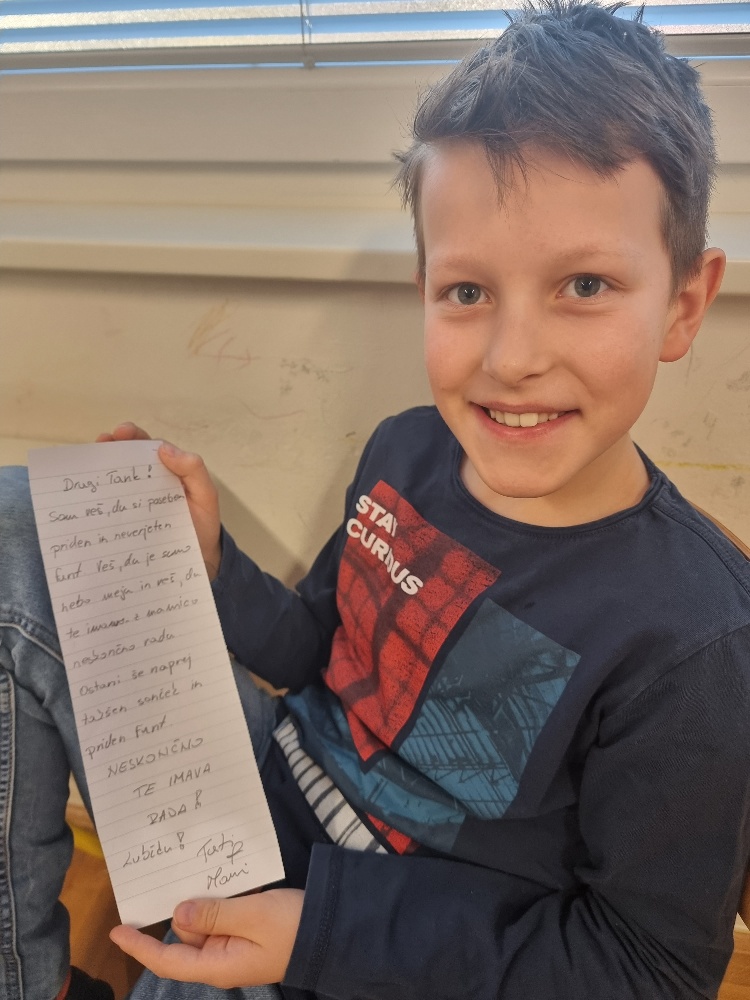 Dragi Tank!
Sam veš, da si poseben
priden in neverjeten
funt. Veš, da je samo
nebo meja in veš, da
te imava z mamico
neskončno rada
Ostani še naprej
takšen sonček in
priden funt.
NESKONČNO
TE IMAVA
RADA!
Lubidu!
Tatj
Mami
STAY
CURIOUS